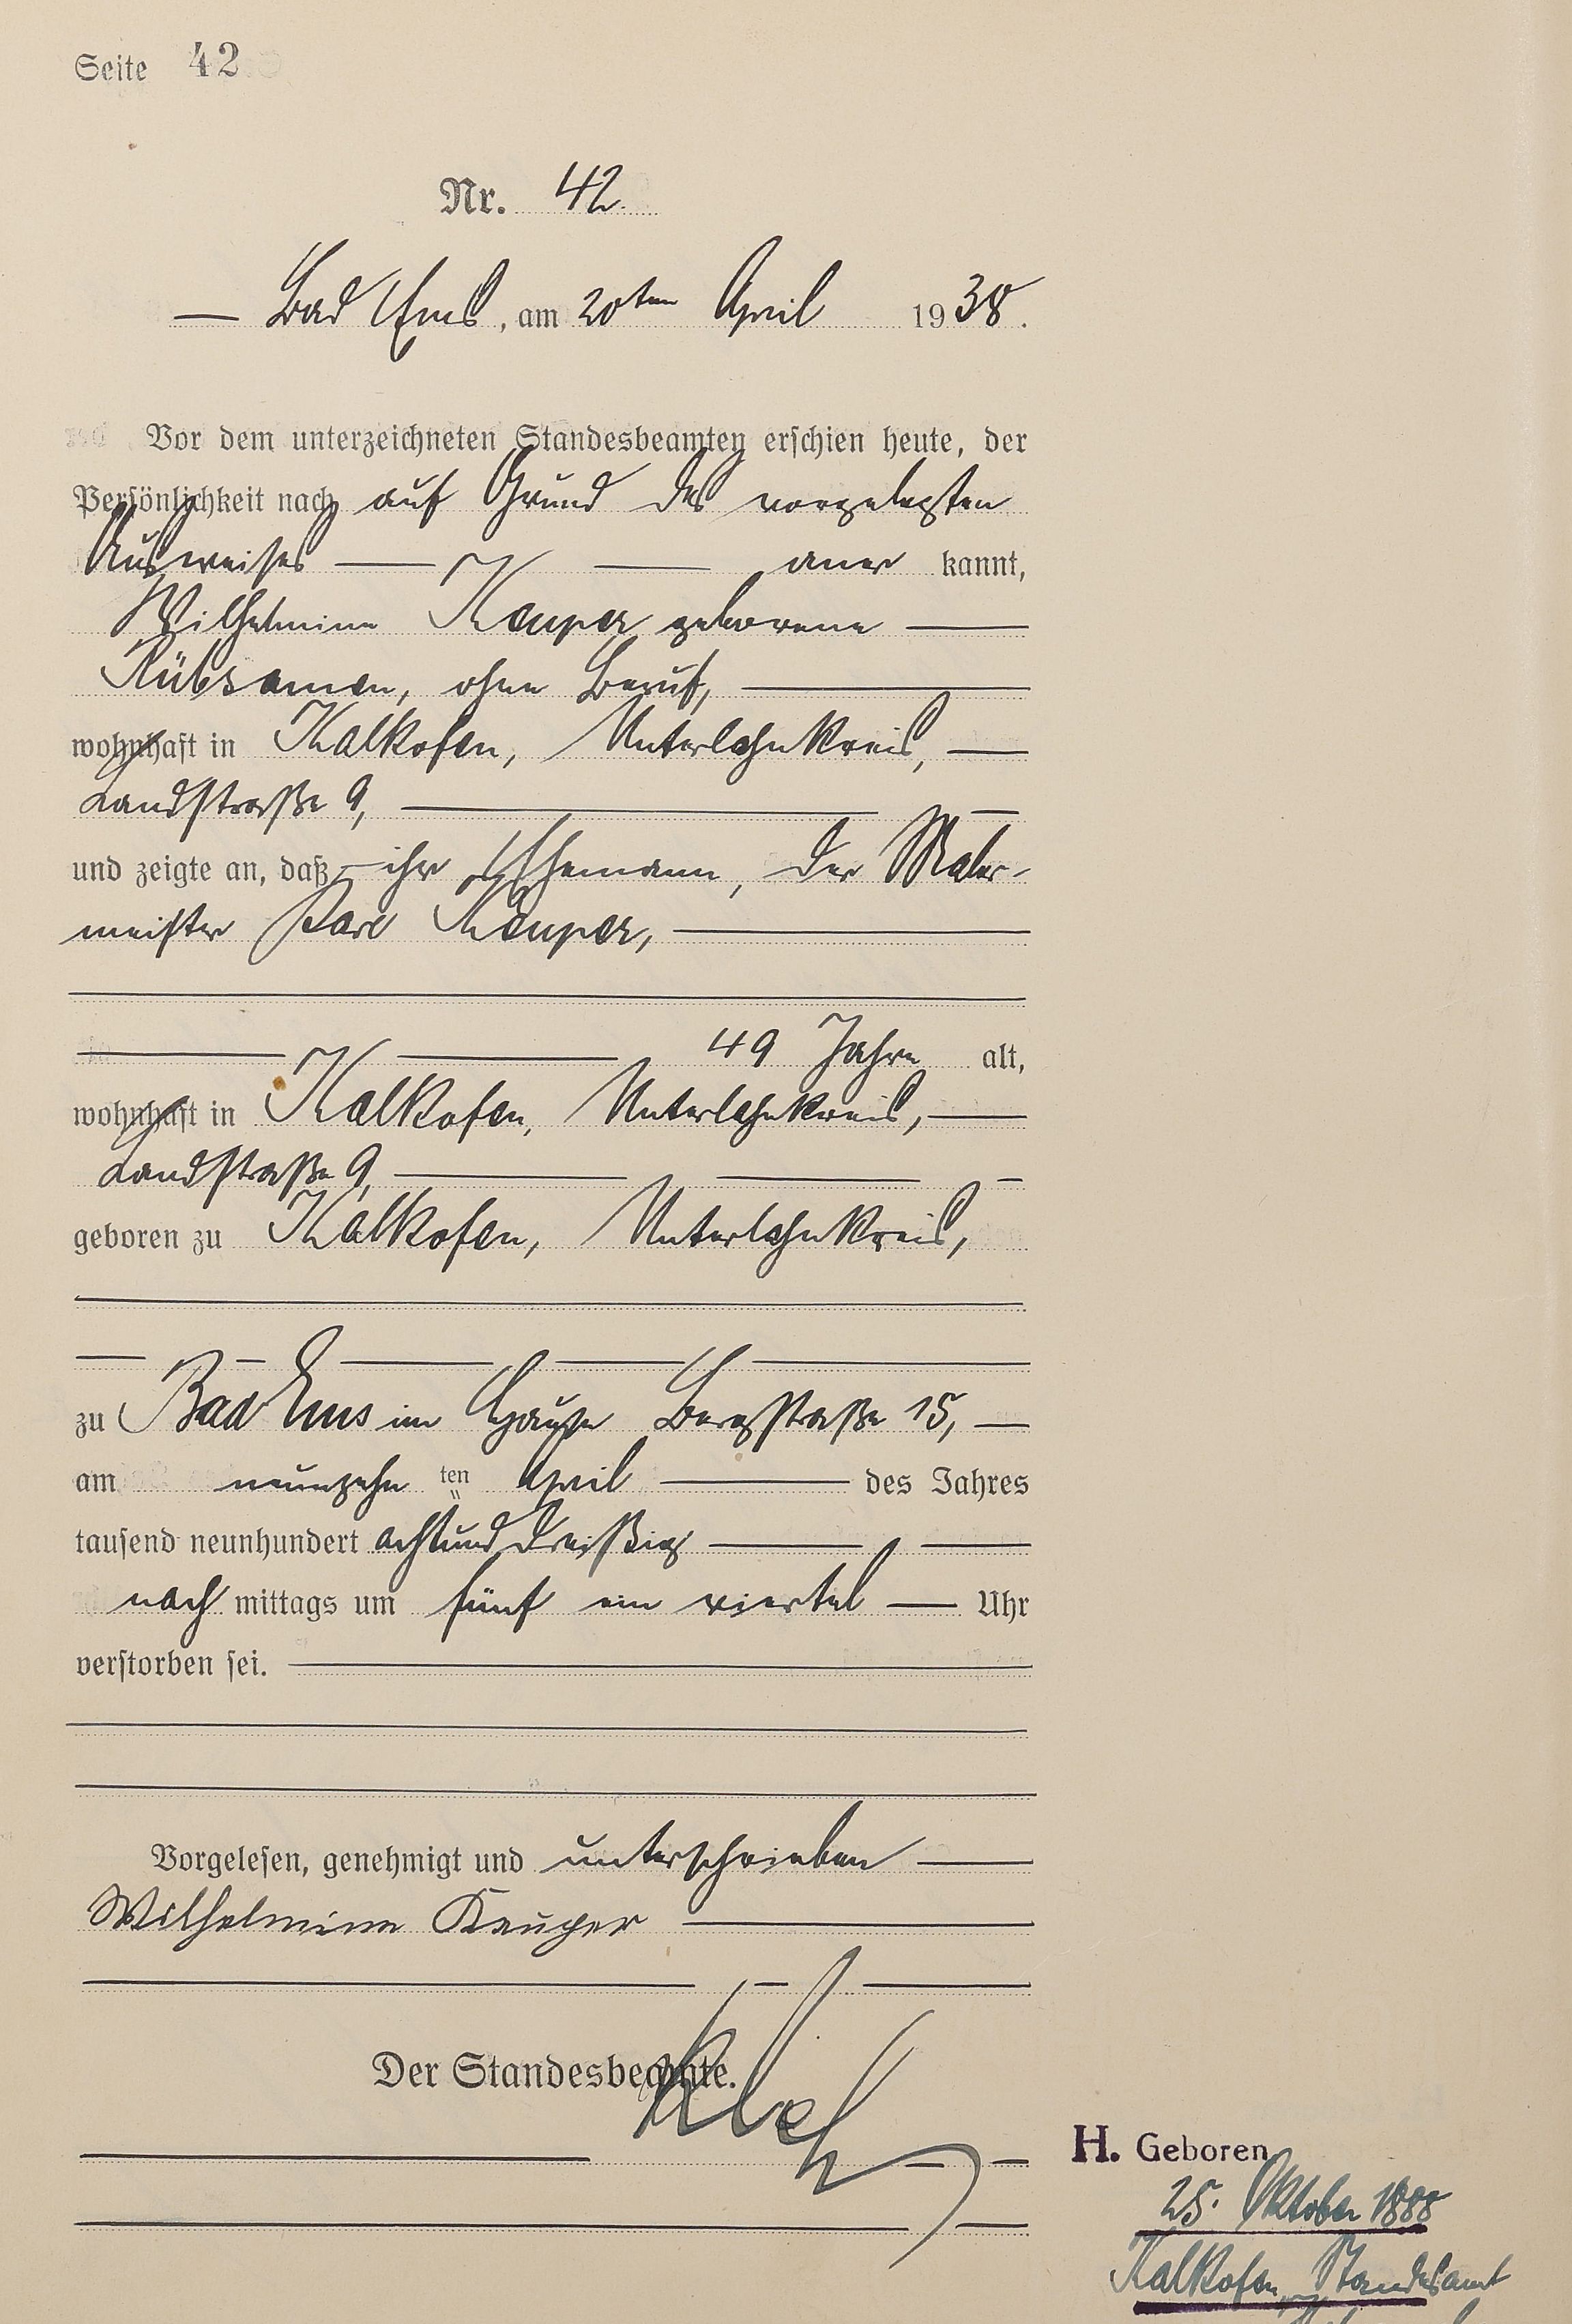 Seite 42
Nr. 42.
— Bad Ems, am 20ten April 1938.
Vor dem unterzeichneten Standesbeamten erschien heute, der
Persönlichkeit nach auf Grund des vorgelegten
Ausweises — — aner kannt,
Wilhelmine Kauper geborene —
Rübsamen, ohne Beruf, —
wohnhaft in Kalkofen, Unterlahnkreis, —
Landstraße 9, —
und zeigte an, daß – ihr Ehemann, der Maler-
meister Karl Kauper, —
49 Jahre alt,
wohnhaft in Kalkofen, Unterlahnkreis, —
Landstraße 9, — — –
geboren zu Kalkofen, Unterlahnkreis,
zu Bad Ems im Hause Bergstraße 15, —
am neunzehn ten April — des Jahres
tausend neunhundert achtunddreißig —
nach mittags um fünf ein viertel — Uhr
verstorben sei. —
Vorgelesen, genehmigt und unterschrieben —
Wilhelmine Kauper —
Der Standesbeamte.
H. Geboren
25. Oktober 1888
Kalkofen, Standesamt